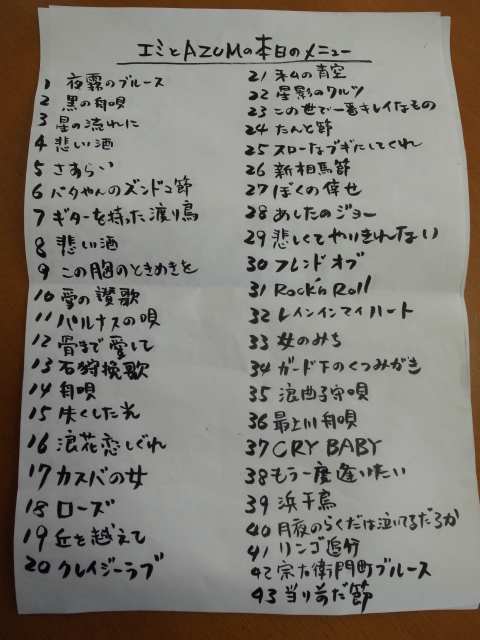 エミとAZUMの本日のメニュー
1 夜霧のブルース
2 黒の舟唄
3 星の流れに
4 悲しい酒
5 さすらい
6 バタやんのズンドコ節
7 ギターを持った渡り鳥
8 悲しい酒
9 この胸のときめきを
10 愛の讃歌
11 パルナスの唄
12 骨まで愛して
13 石狩挽歌
14 舟唄
15 失くした光
16 浪花恋しぐれ
17 カスバの女
18 ローズ
19 丘を越えて
20 クレイジーラブ
21 私の青空
22 星影のワルツ
23 この世で一番キレイなもの
24 たんと節
25 スローなブギにしてくれ
26 新相馬節
27 ぼくの倖せ
28 あしたのジョー
29 悲しくてやりきれない
30 フレンド オブ
31 Rock'n Roll
32 レインインマイハート
33 女のみち
34 ガード下のくつみがき
35 浪曲子守唄
36 最上川舟唄
37 CRY BABY
38 もう一度逢いたい
39 浜千鳥
40 月夜のらくだは泣いてるだろか
41 リンゴ追分
42 宗右衛門町ブルース
43 当り前だ節